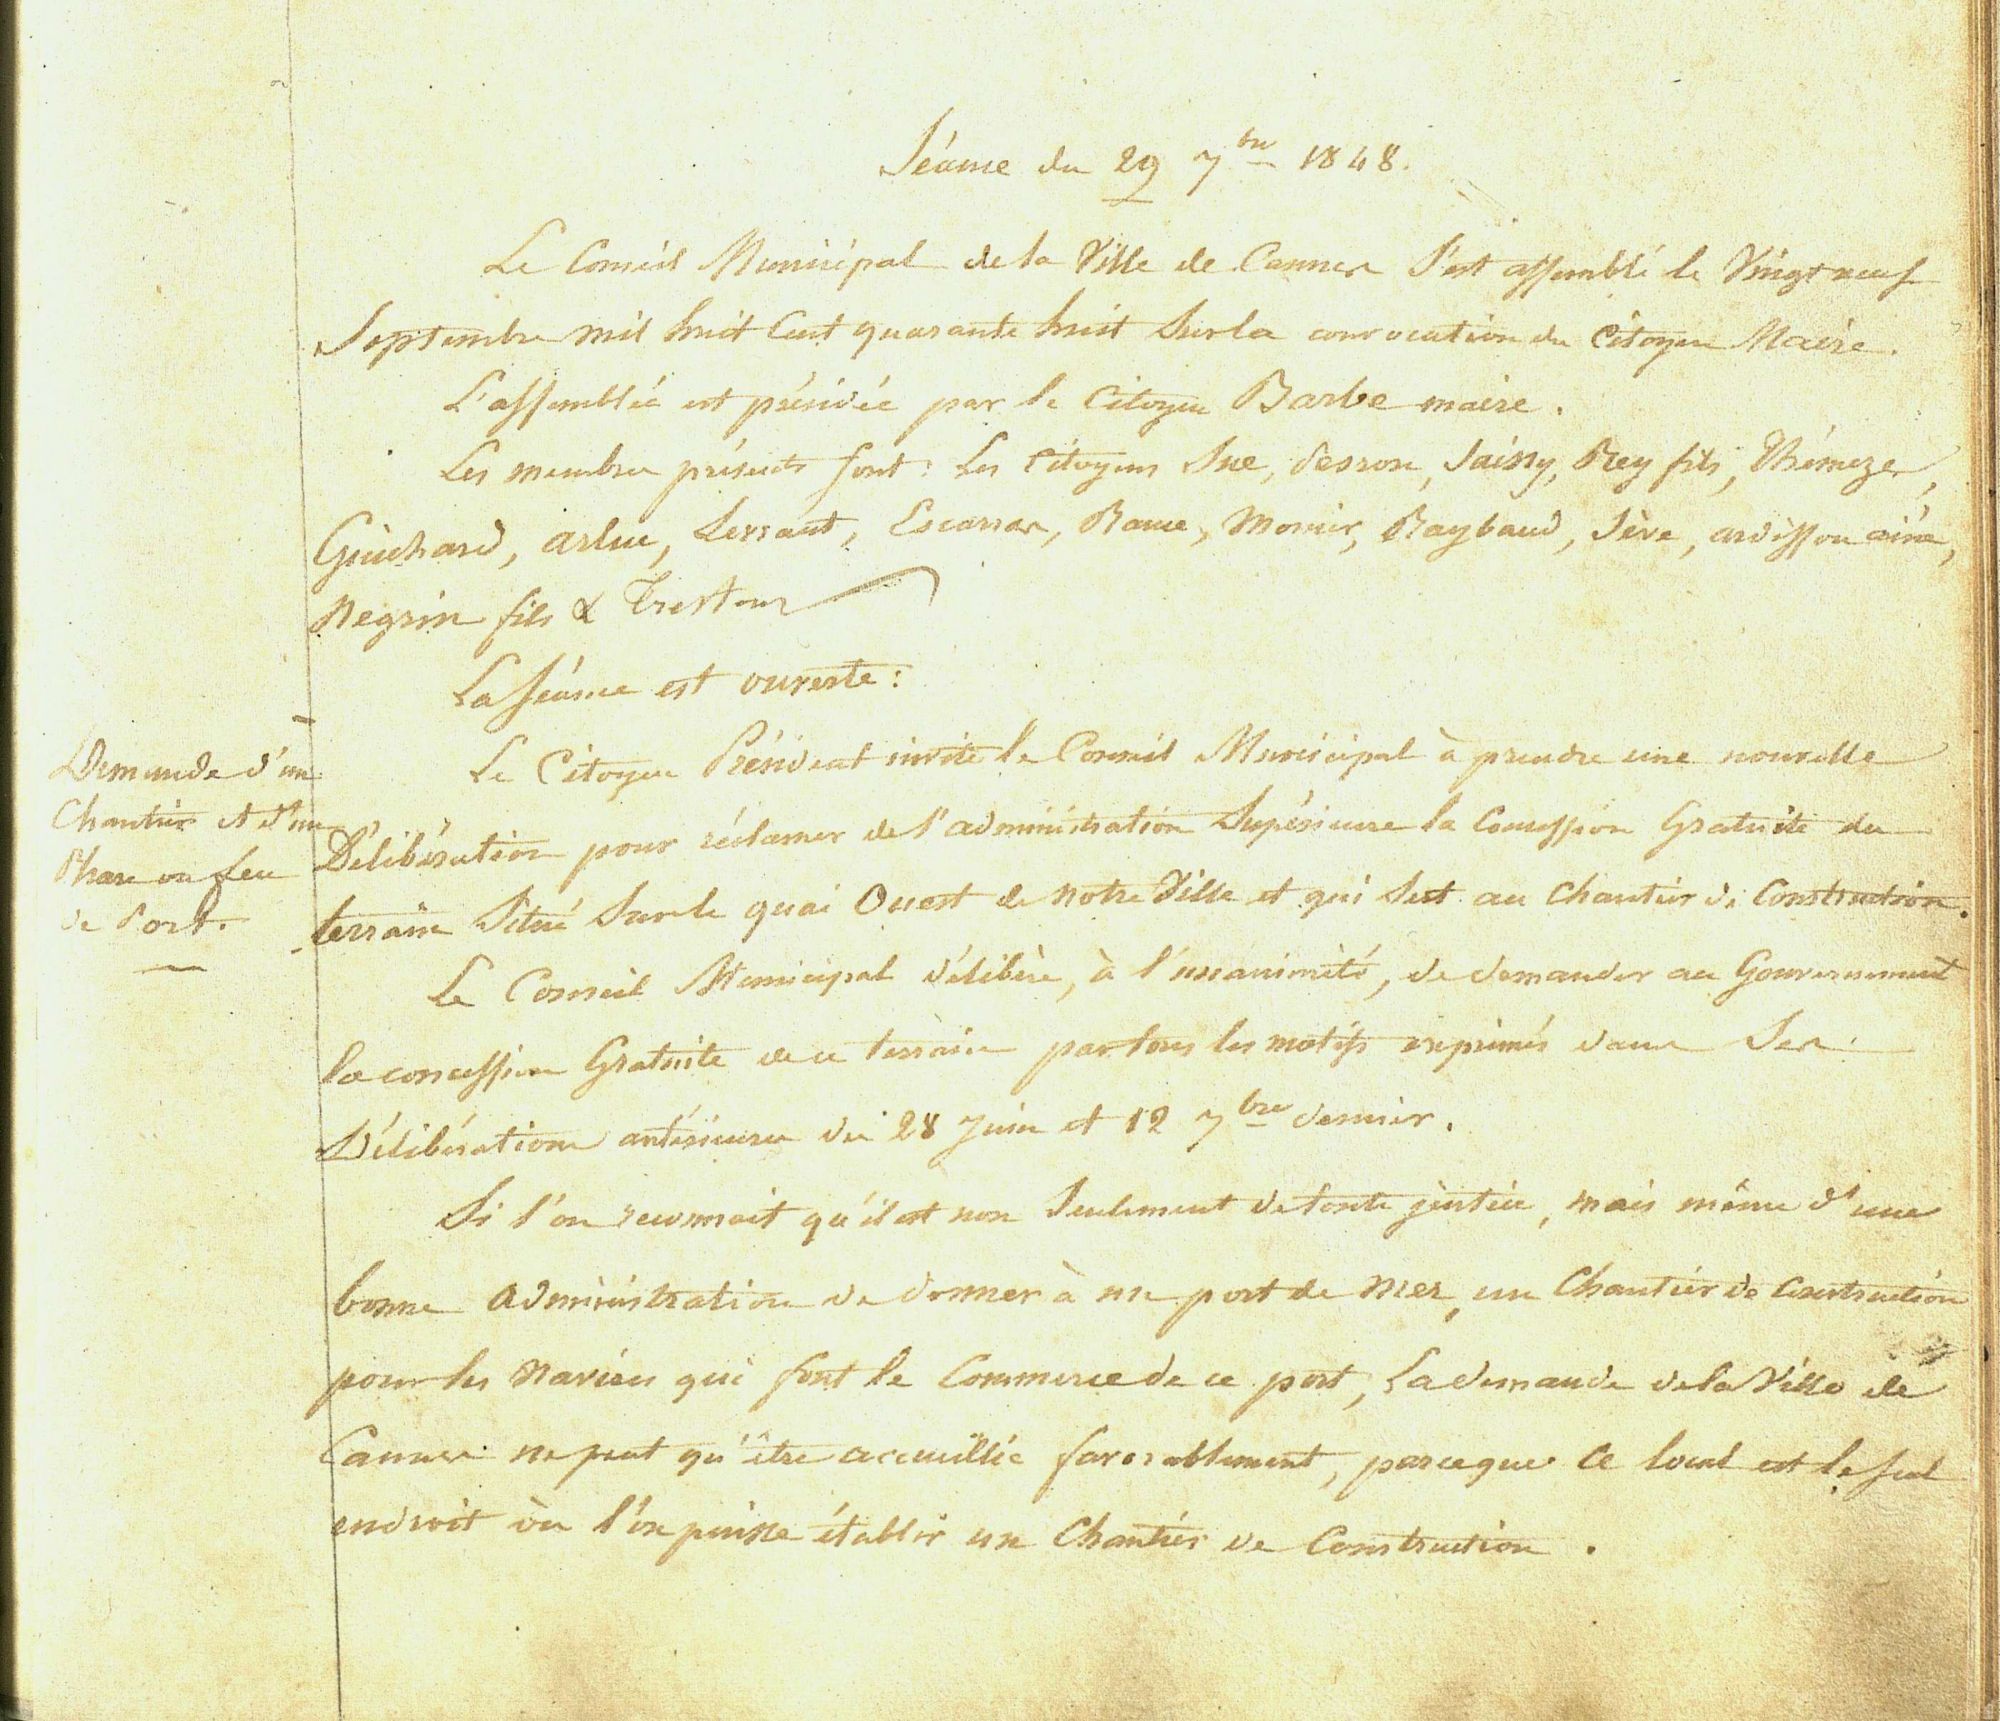 Séance du 29 7bre 1848.
Le Conseil Municipal de la Ville de Cannes s'est assemblé le Vingt neuf
Septembre mil huit Cent quarante huit sur la convocation du Citoyen Maire.
L'assemblée est présidée par le Citoyen Barbe maire.
Les membres présents sont : Les Citoyens Sue, Jaissy, Rey fils,
Guichard, arluc, Escarras, Monier, Raybaud, Sève, ardisson ainé,
Negrin fils & Trestour
La séance est ouverte :
Demande d'un
Chantier et d'un
Phare ou feu
de Port.
Le Citoyen Président invite le Conseil Municipal à prendre une nouvelle
Délibération pour réclamer de l'administration Supérieure la Concession Gratuite du
terrain Situé Sur le quai Ouest de notre Ville et qui Sert au Chantier de Construction.
Le Conseil Municipal délibère, à l'unanimité, de demander au Gouvernement
la concession Gratuite de ce terrain par tous les motifs exprimés dans Ses
Délibérations antérieures du 28 Juin et 12 7bre dernier.
Si l'on reconnait qu'il est non Seulement de toute justice, mais même d'une
bonne administration de donner à un port de mer, un Chantier de Construction
pour les navires qui font le Commerce de ce port, La demande de la Ville de
Cannes ne peut qu'être accueillie favorablement, parceque ce local est le seul
endroit où l'on puisse établir un Chantier de Construction .